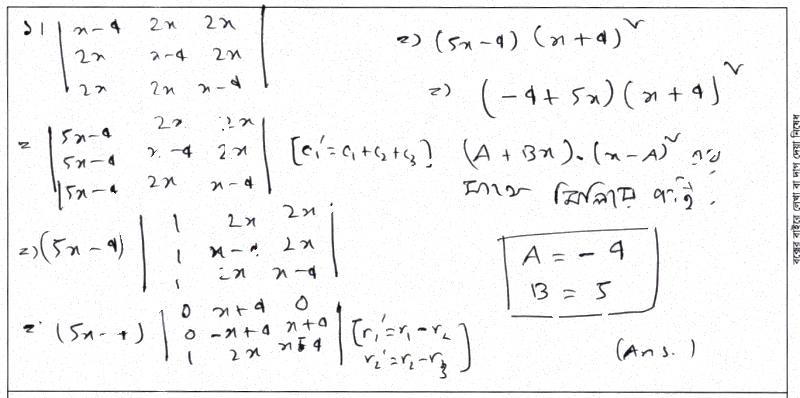 ১। | x-4 2x 2x |
| 2x x-4 2x |
| 2x 2x x-4 |
= | 5x-4 2x 2x |
| 5x-4 x-4 2x | [c₁' = c₁ + c₂ + c₃]
| 5x-4 2x x-4 |
=) (5x-4) | 1 2x 2x |
| 1 x- 2x |
| 1 2x x-4 |
= (5x-4) | 0 x+4 0 |
| 0 -x+4 x+4 | [r₁' = r₁ - r₂
| 1 2x x-4 | r₂' = r₂ - r₃]
=) (5x-4) (x+4)²
=) (-4+5x) (x+4)²
(A + Bx).(x-A)² এর
সাথে মিলিয়ে পাই,
A = -4
B = 5
(Ans.)
বক্সের বাইরে লেখা বা দাগ দেয়া নিষেধ